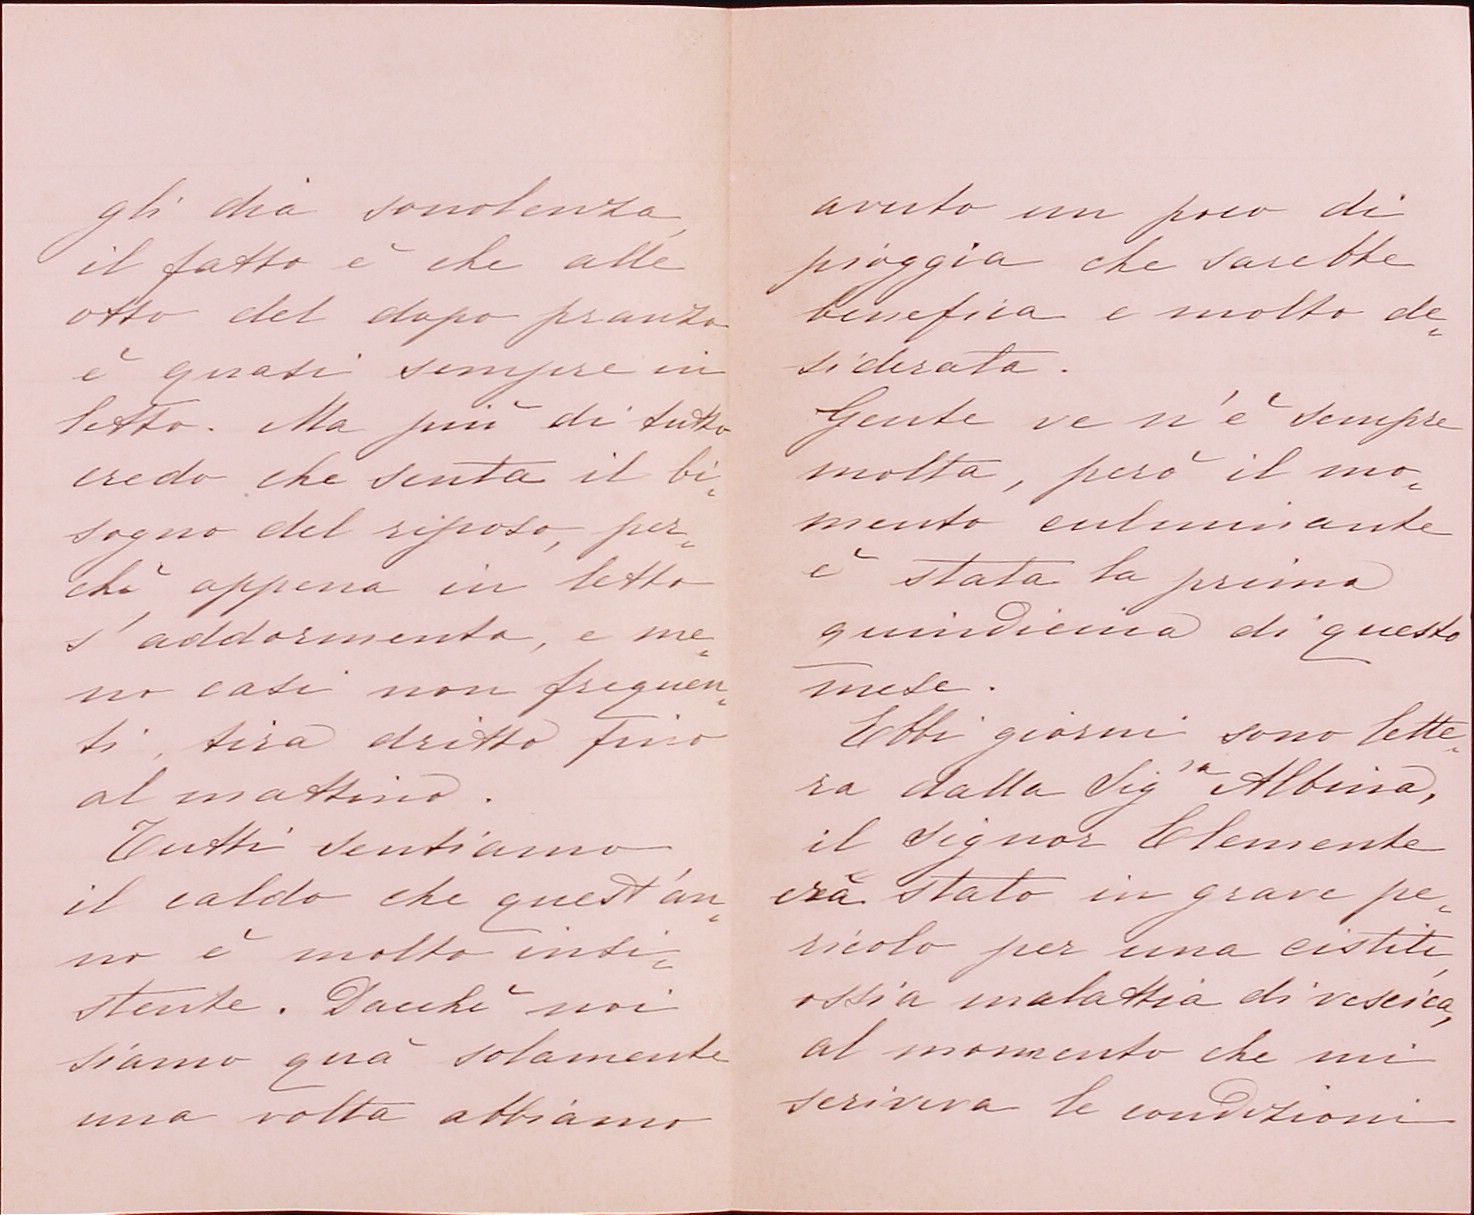 gli dia sonolenza,
il fatto è che alle
otto del dopo pranzo
è quasi sempre in
letto. Ma più di tutto
credo che senta il bi-
sogno del riposo, per-
chè appena in letto
s'addormenta, e me-
no casi non frequen-
ti, tira dritto fino
al mattino.
Tutti sentiamo
il caldo che quest'an-
no è molto insi-
stente. Dacchè noi
siamo quà solamente
una volta abbiamo
avuto un poco di
pioggia che sarebbe
benefica e molto de-
siderata.
Gente ve n'è sempre
molta, però il mo-
mento culminante
è stata la prima
quindicina di questo
mese.
Ebbi giorni sono lette-
ra dalla Sig.ra Albina,
il Signor Clemente
era stato in grave pe-
ricolo per una cistite,
ossia malattia di vescica,
al momento che mi
scriveva le condizioni